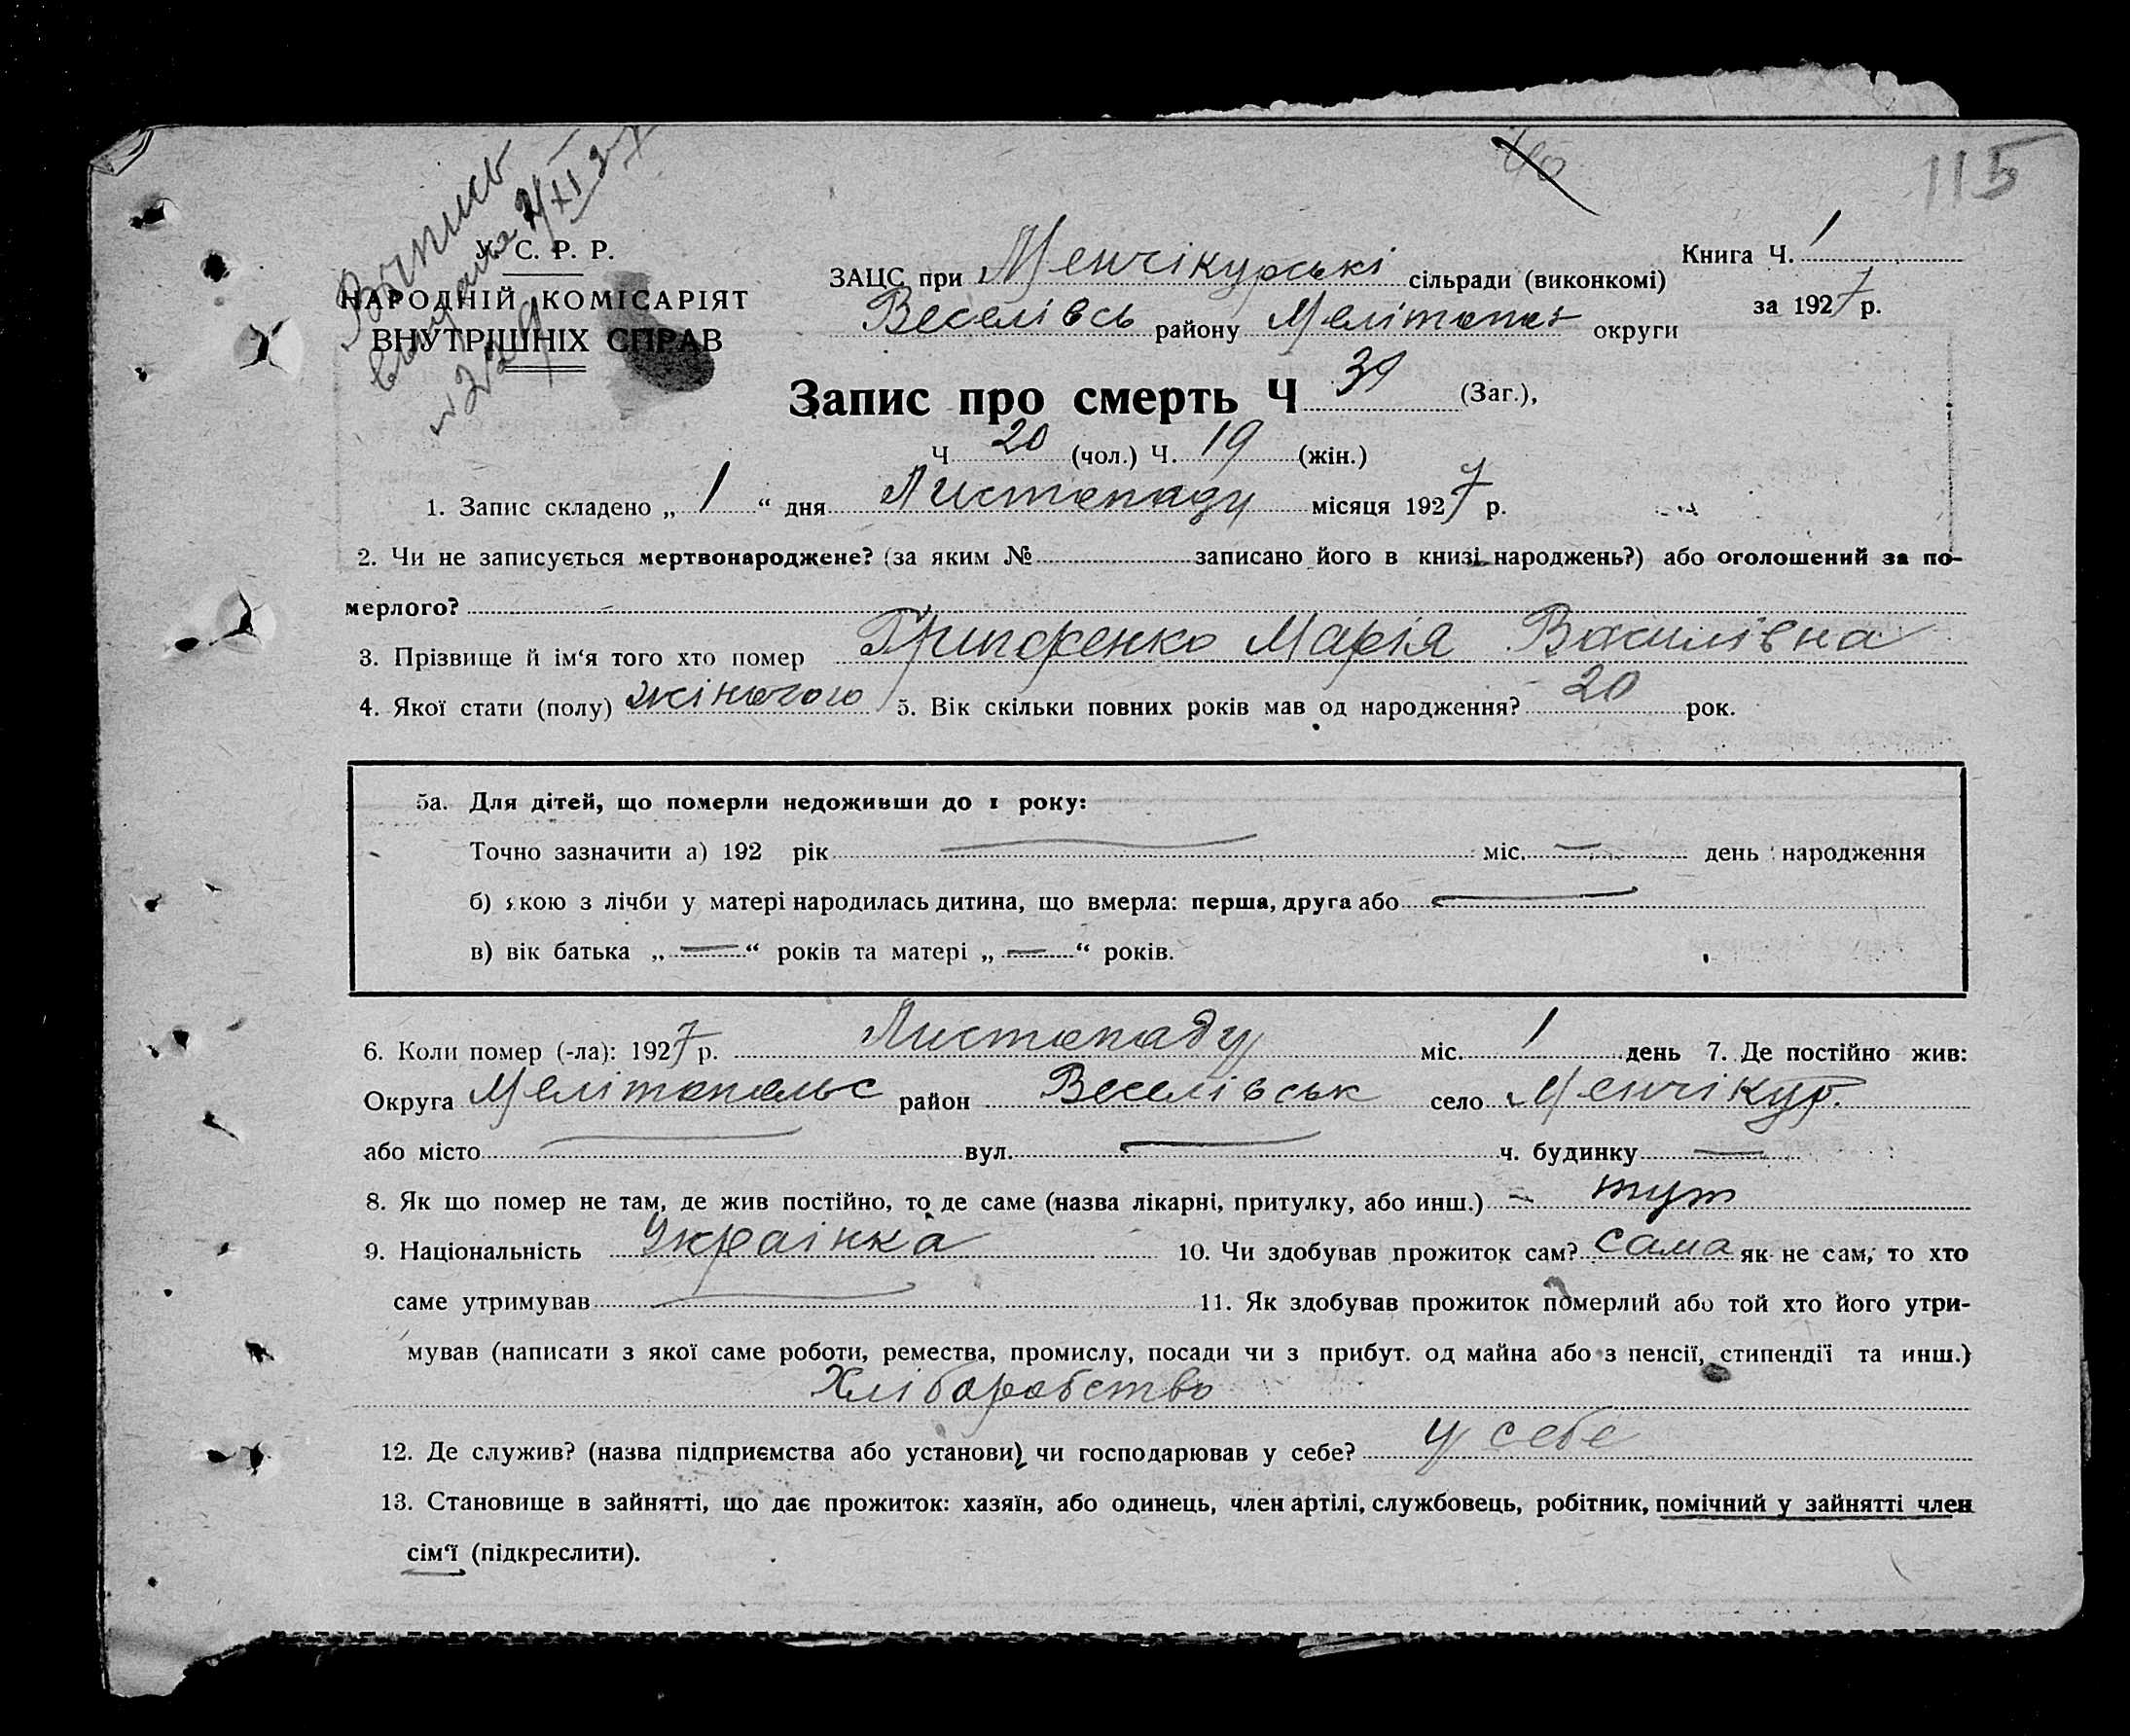 115
Випись
У. С. Р. Р.
НАРОДНІЙ КОМІСАРІЯТ
ВНУТРІШНІХ СПРАВ
ЗАЦС при Менчікурські сільради (виконкомі)
Книга Ч. 1
Веселівсь району Мелітопол округи
за 1927 р.
Запис про смерть Ч 39 (Заг.),
Ч 20 (чол.) Ч. 19 (жін.)
1. Запис складено „ 1 “ дня Листопаду місяця 1927 р.
2. Чи не записується мертвонароджене? (за яким № записано його в книзі народжень?) або оголошений за по-
мерлого?
3. Прізвище й ім‘я того хто помер Марія Василівна
4. Якої стати (полу) жіночого 5. Вік скільки повних років мав од народження? 20 рок.
5а. Для дітей, що померли недоживши до 1 року:
Точно зазначити а) 192 рік — міс. — день народження
б) якою з лічби у матері народилась дитина, що вмерла: перша, друга або —
в) вік батька „ — “ років та матері „ — “ років.
6. Коли помер (-ла): 1927 р. Листопаду міс. 1 день 7. Де постійно жив:
Округа Мелітопольс район Веселівськ село Менчікур.
або місто — вул. — ч. будинку —
8. Як що помер не там, де жив постійно, то де саме (назва лікарні, притулку, або инш.) – тут
9. Національність Українка 10. Чи здобував прожиток сам? сама як не сам, то хто
саме утримував — 11. Як здобував прожиток померлий або той хто його утри-
мував (написати з якої саме роботи, ремества, промислу, посади чи з прибут. од майна або з пенсії, стипендії та инш.)
Хліборобство
12. Де служив? (назва підприємства або установи) чи господарював у себе? у себе
13. Становище в зайнятті, що дає прожиток: хазяїн, або одинець, член артілі, службовець, робітник, помічний у зайнятті член
сім‘ї (підкреслити).